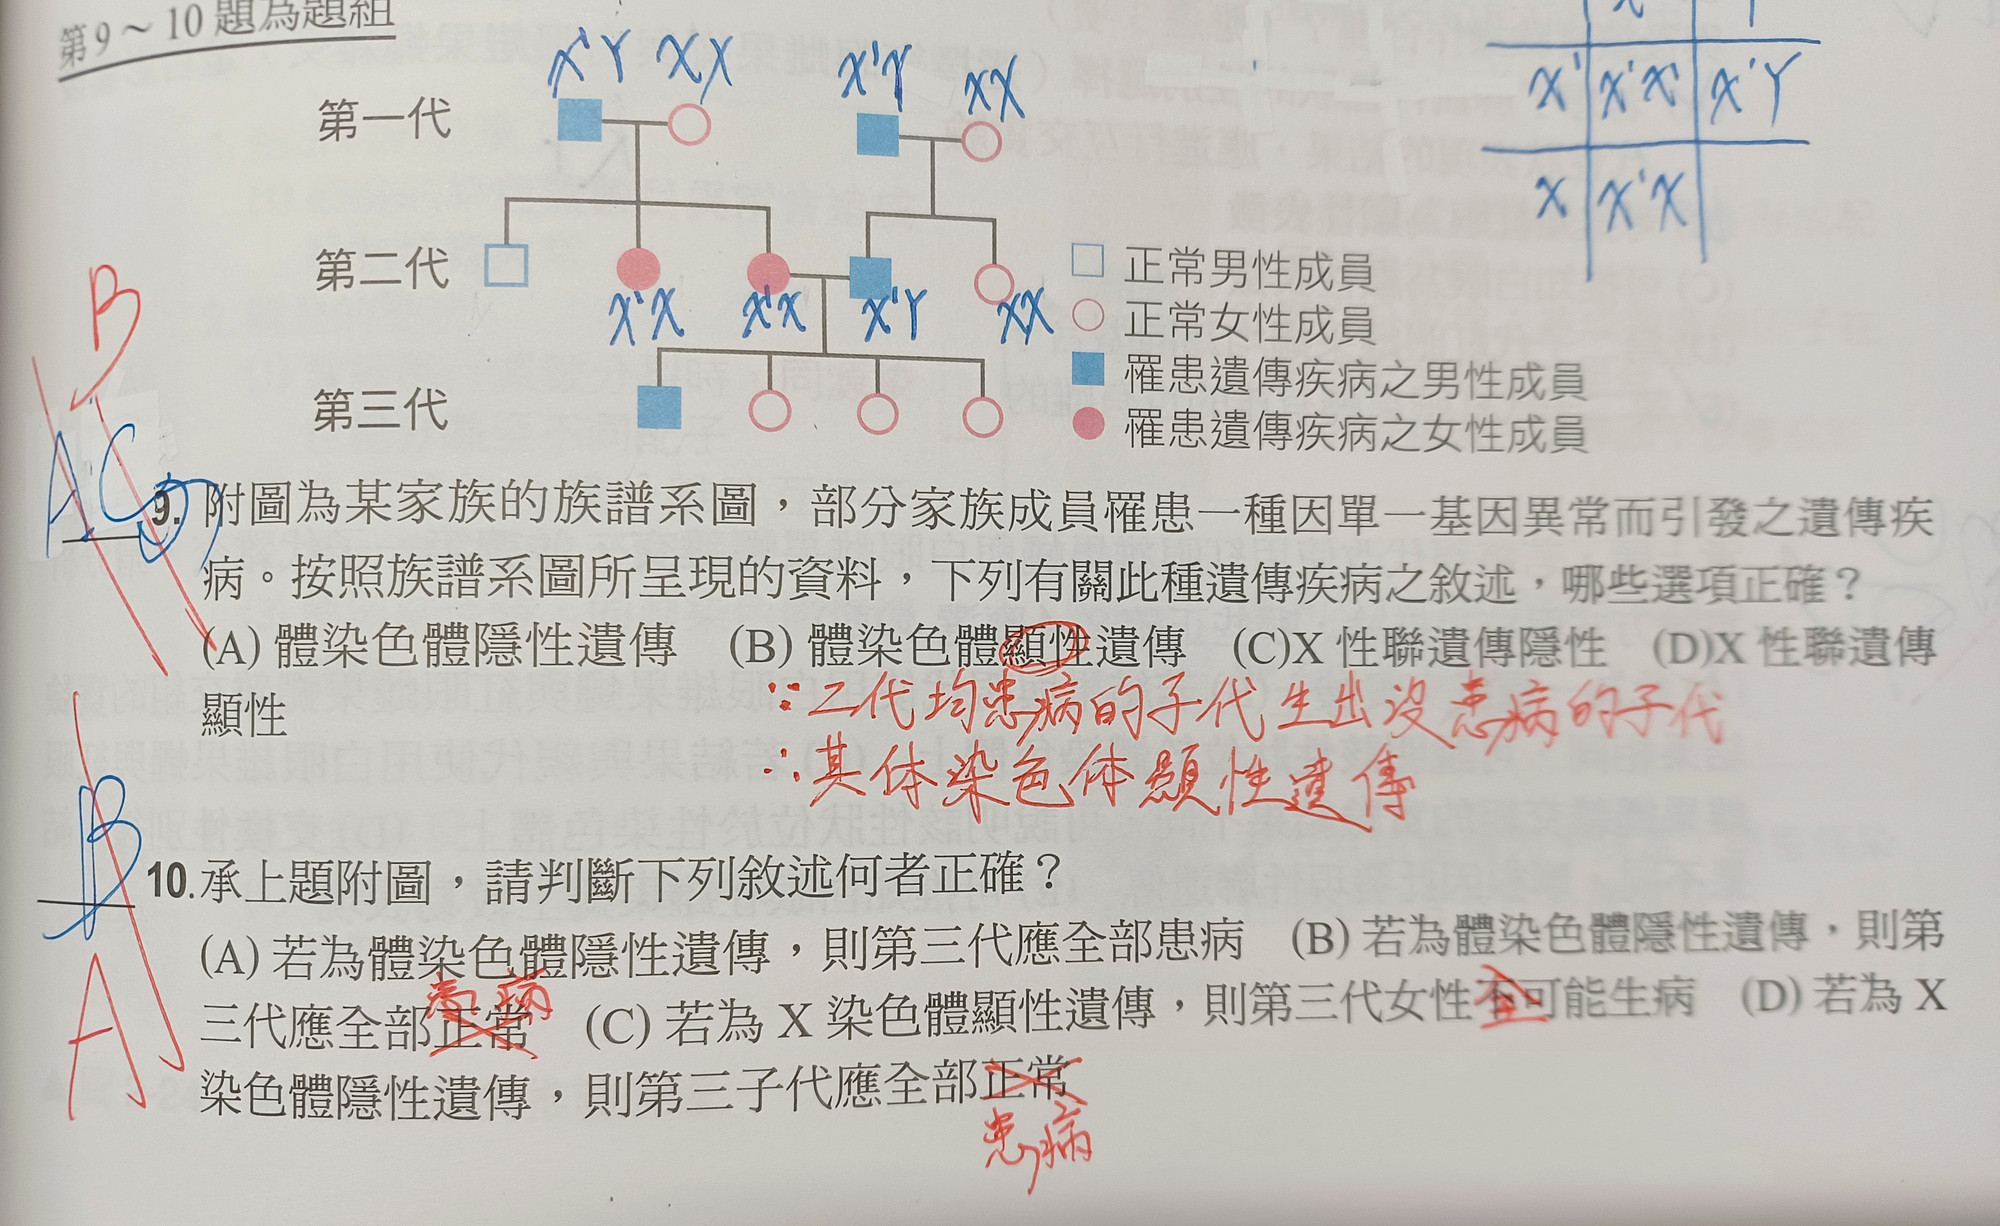 第9～10題為題組
X'Y XX X'Y XX
X' X'X' X'Y
X X'X
第一代
第二代
X'X X'X X'Y XX
第三代
正常男性成員
正常女性成員
罹患遺傳疾病之男性成員
罹患遺傳疾病之女性成員
B
AC
9. 附圖為某家族的族譜系圖，部分家族成員罹患一種因單一基因異常而引發之遺傳疾
病。按照族譜系圖所呈現的資料，下列有關此種遺傳疾病之敘述，哪些選項正確？
(A) 體染色體隱性遺傳 (B) 體染色體顯性遺傳 (C)X 性聯遺傳隱性 (D)X 性聯遺傳
顯性
∵二代均患病的子代生出沒患病的子代
∴其体染色体顯性遺傳
B
A
10.承上題附圖，請判斷下列敘述何者正確？
(A) 若為體染色體隱性遺傳，則第三代應全部患病 (B) 若為體染色體隱性遺傳，則第
患病
三代應全部正常 (C) 若為 X 染色體顯性遺傳，則第三代女性不可能生病 (D) 若為 X
全
染色體隱性遺傳，則第三子代應全部正常
患病